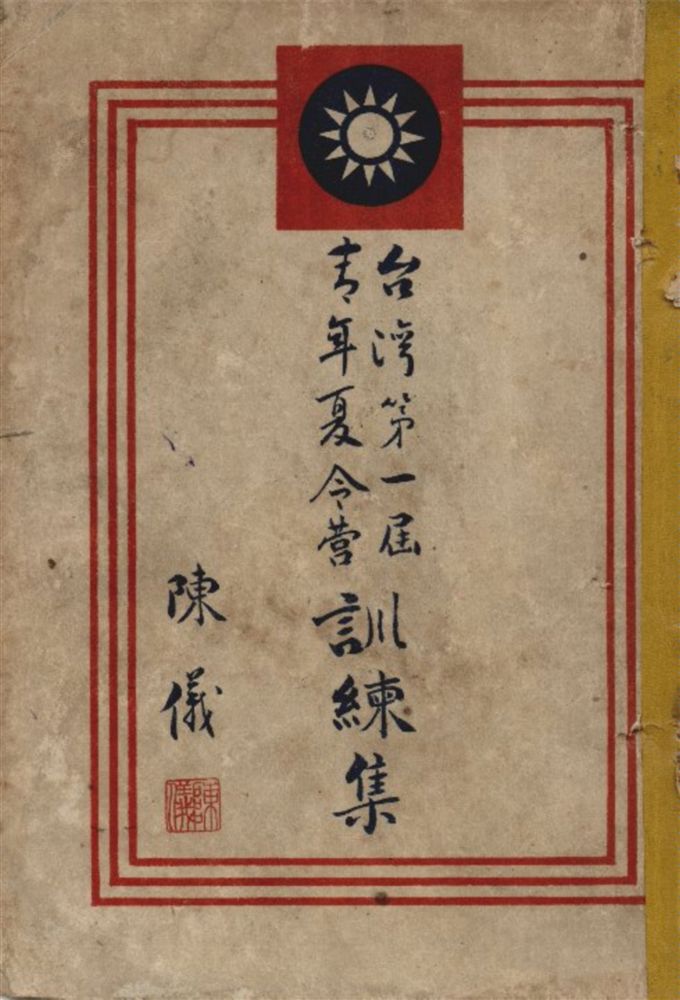 台灣第一屆
青年夏令營
訓練集
陳儀
陳儀